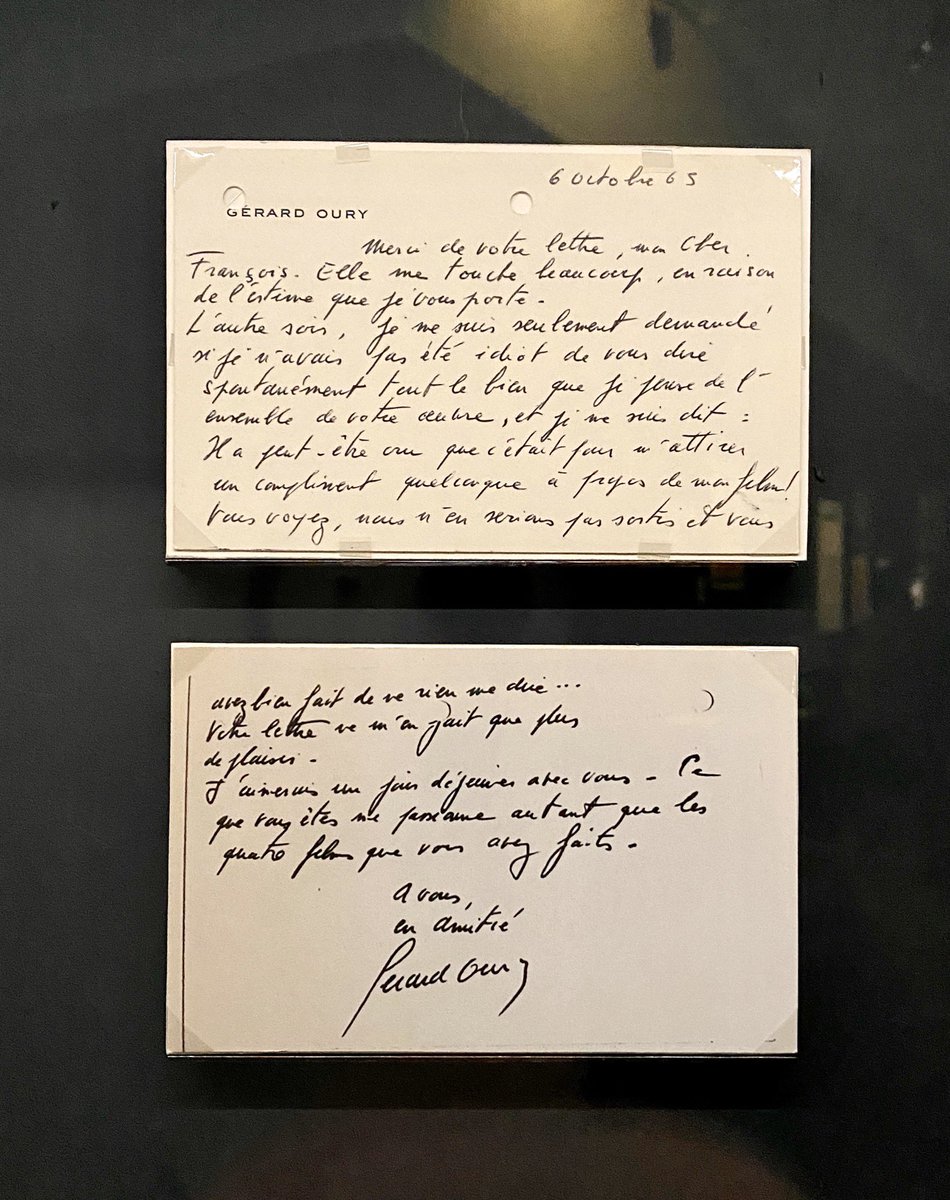 6 Octobre 65
GÉRARD OURY
Merci de votre lettre, mon Cher
François. Elle me touche beaucoup, en raison
de l'estime que je vous porte.
L'autre soir, je me suis seulement demandé
si je n'avais pas été idiot de vous dire
spontanément tout le bien que je pense de l'
ensemble de votre œuvre, et je me suis dit :
Il a peut-être cru que c'était pour m'attirer
un compliment quelconque à propos de mon film!
Vous voyez, nous n'en serions pas sortis et vous
avez bien fait de ne rien me dire...
Votre lettre ne m'en fait que plus
de plaisir.
J'aimerais un jour déjeuner avec vous - Ce
que vous êtes me passionne autant que les
quatre films que vous avez faits.
A vous,
en amitié
Gérard Oury